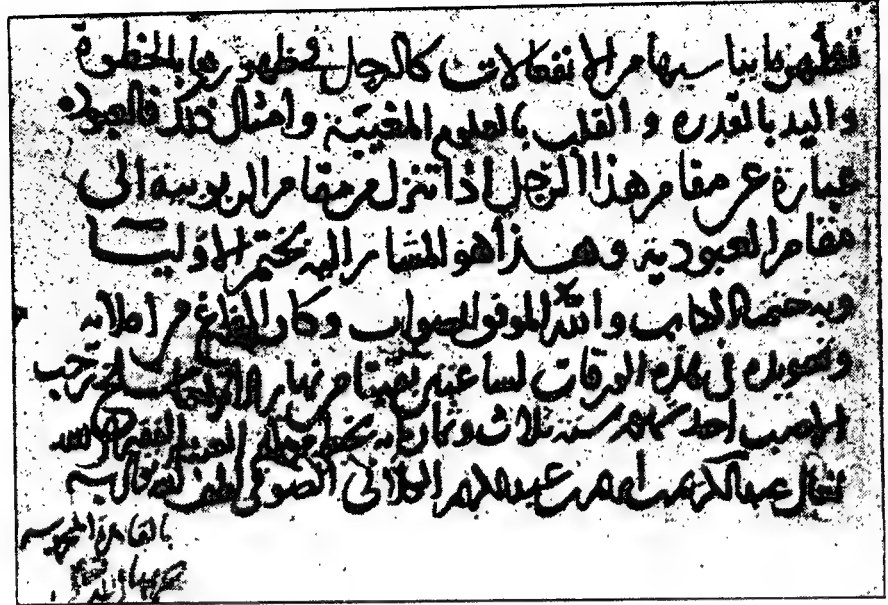 فتظهر بما يناسبها من الانفعالات كالرجل في ظهورها بالخطوة
واليد بالقدرة والقلب بالعلوم المغيبة وأمثال ذلك فالعبودة
عبارة عن مقام هذا الرجل اذا تنزل من مقام الربوبية الى
مقام العبودية وهذا هو المشار اليه بختم الاوليا
وبه ختمنا الكتاب والله الموفق للصواب وكان الفراغ من املائه
وتحويده في هذه الورقات لساعتين بقيتا من نهار سلخ رجب
الاصب احد شهور سنة ثلاث وثمانمائة بخط العبد الفقير الى الله
تعالى عبد الكريم بن ابراهيم بن عبد الكريم الكيلاني الصوفي لطف الله تعالى به
بالقاهرة المحروسة